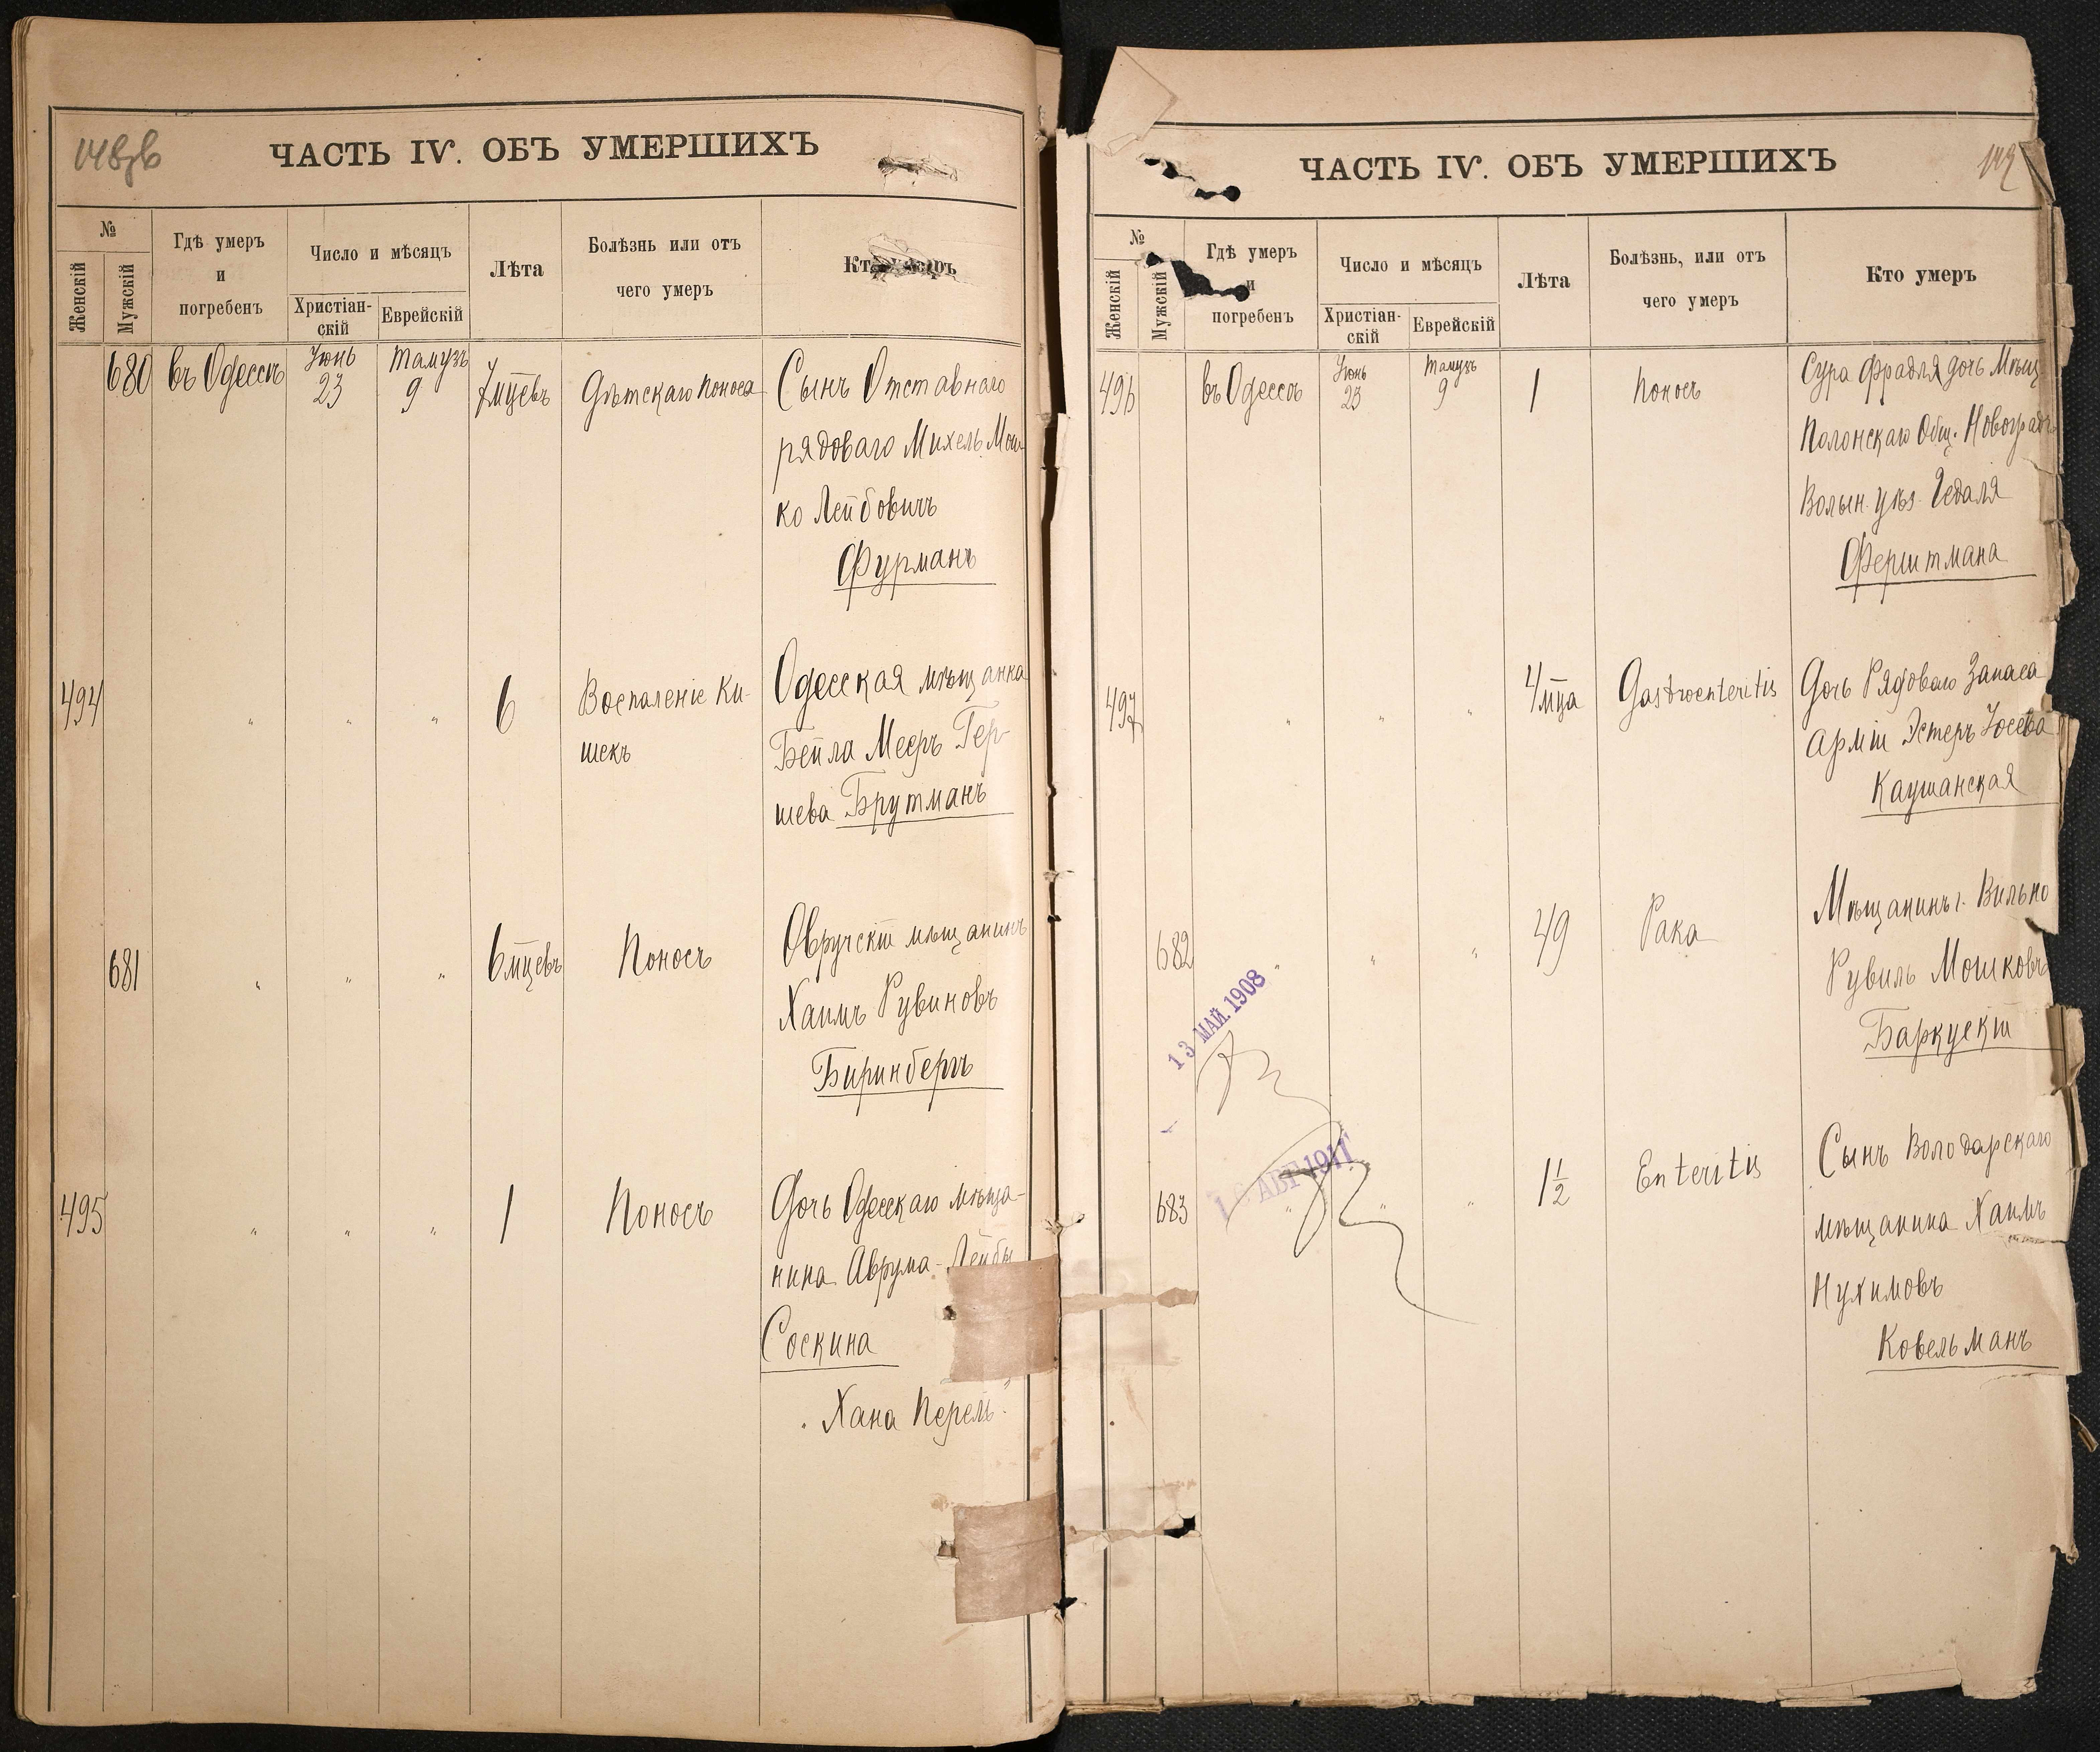 ЧАСТЬ IV. ОБЪ УМЕРШИХЪ
№
Женскій
Мужскій
Гдѣ умеръ
и
погребенъ
Число и мѣсяцъ
Христіан-
скій
Еврейскій
Лѣта
Болѣзнь или отъ
чего умеръ
680 въ Одессѣ Іюнь 23 Тамузъ 9 7 мцевъ Дѣтскаго поноса Сынъ Отставнаго
рядоваго Михель Мош-
ко Лейбовичъ
Фурманъ
494 " " " 6 Воспаленіе Ки-
шекъ
Одесская мѣщанка
Бейла Мееръ Гер-
шева Брутманъ
681 " " " 6 мцевъ Поносъ Овручскій мѣщанинъ
Хаимъ Рувиновъ
Биринбергъ
495 " " " 1 Поносъ Дочь Одесскаго мѣща-
нина Аврума-Лейбы
Соскина
"Хана Перель"
ЧАСТЬ IV. ОБЪ УМЕРШИХЪ
149
№
Женскій
Мужскій
Гдѣ умеръ
и
погребенъ
Число и мѣсяцъ
Христіан-
скій
Еврейскій
Лѣта
Болѣзнь, или отъ
чего умеръ
Кто умеръ
496 въ Одессѣ Іюнь 23 Тамузъ 9 1 Поносъ Сура Фрадля дочь Мѣщ.
Полонскаго Общ. Новоград
Волын. уѣз. Гедаля
Ферштмана
497 " " " 4 мца Gastroenteritis Дочь Рядоваго Запаса
Арміи Эстеръ Юсева
Каушанская
682 " " " 49 Рака Мѣщанинъ г. Вильно
Рувиль Мошковъ
Баркускій
13 МАЙ. 1908
АВГ 1911
683 " " " 1½ Enteritis Сынъ Володарскаго
мѣщанина Хаимъ
Нухимовъ
Ковельманъ